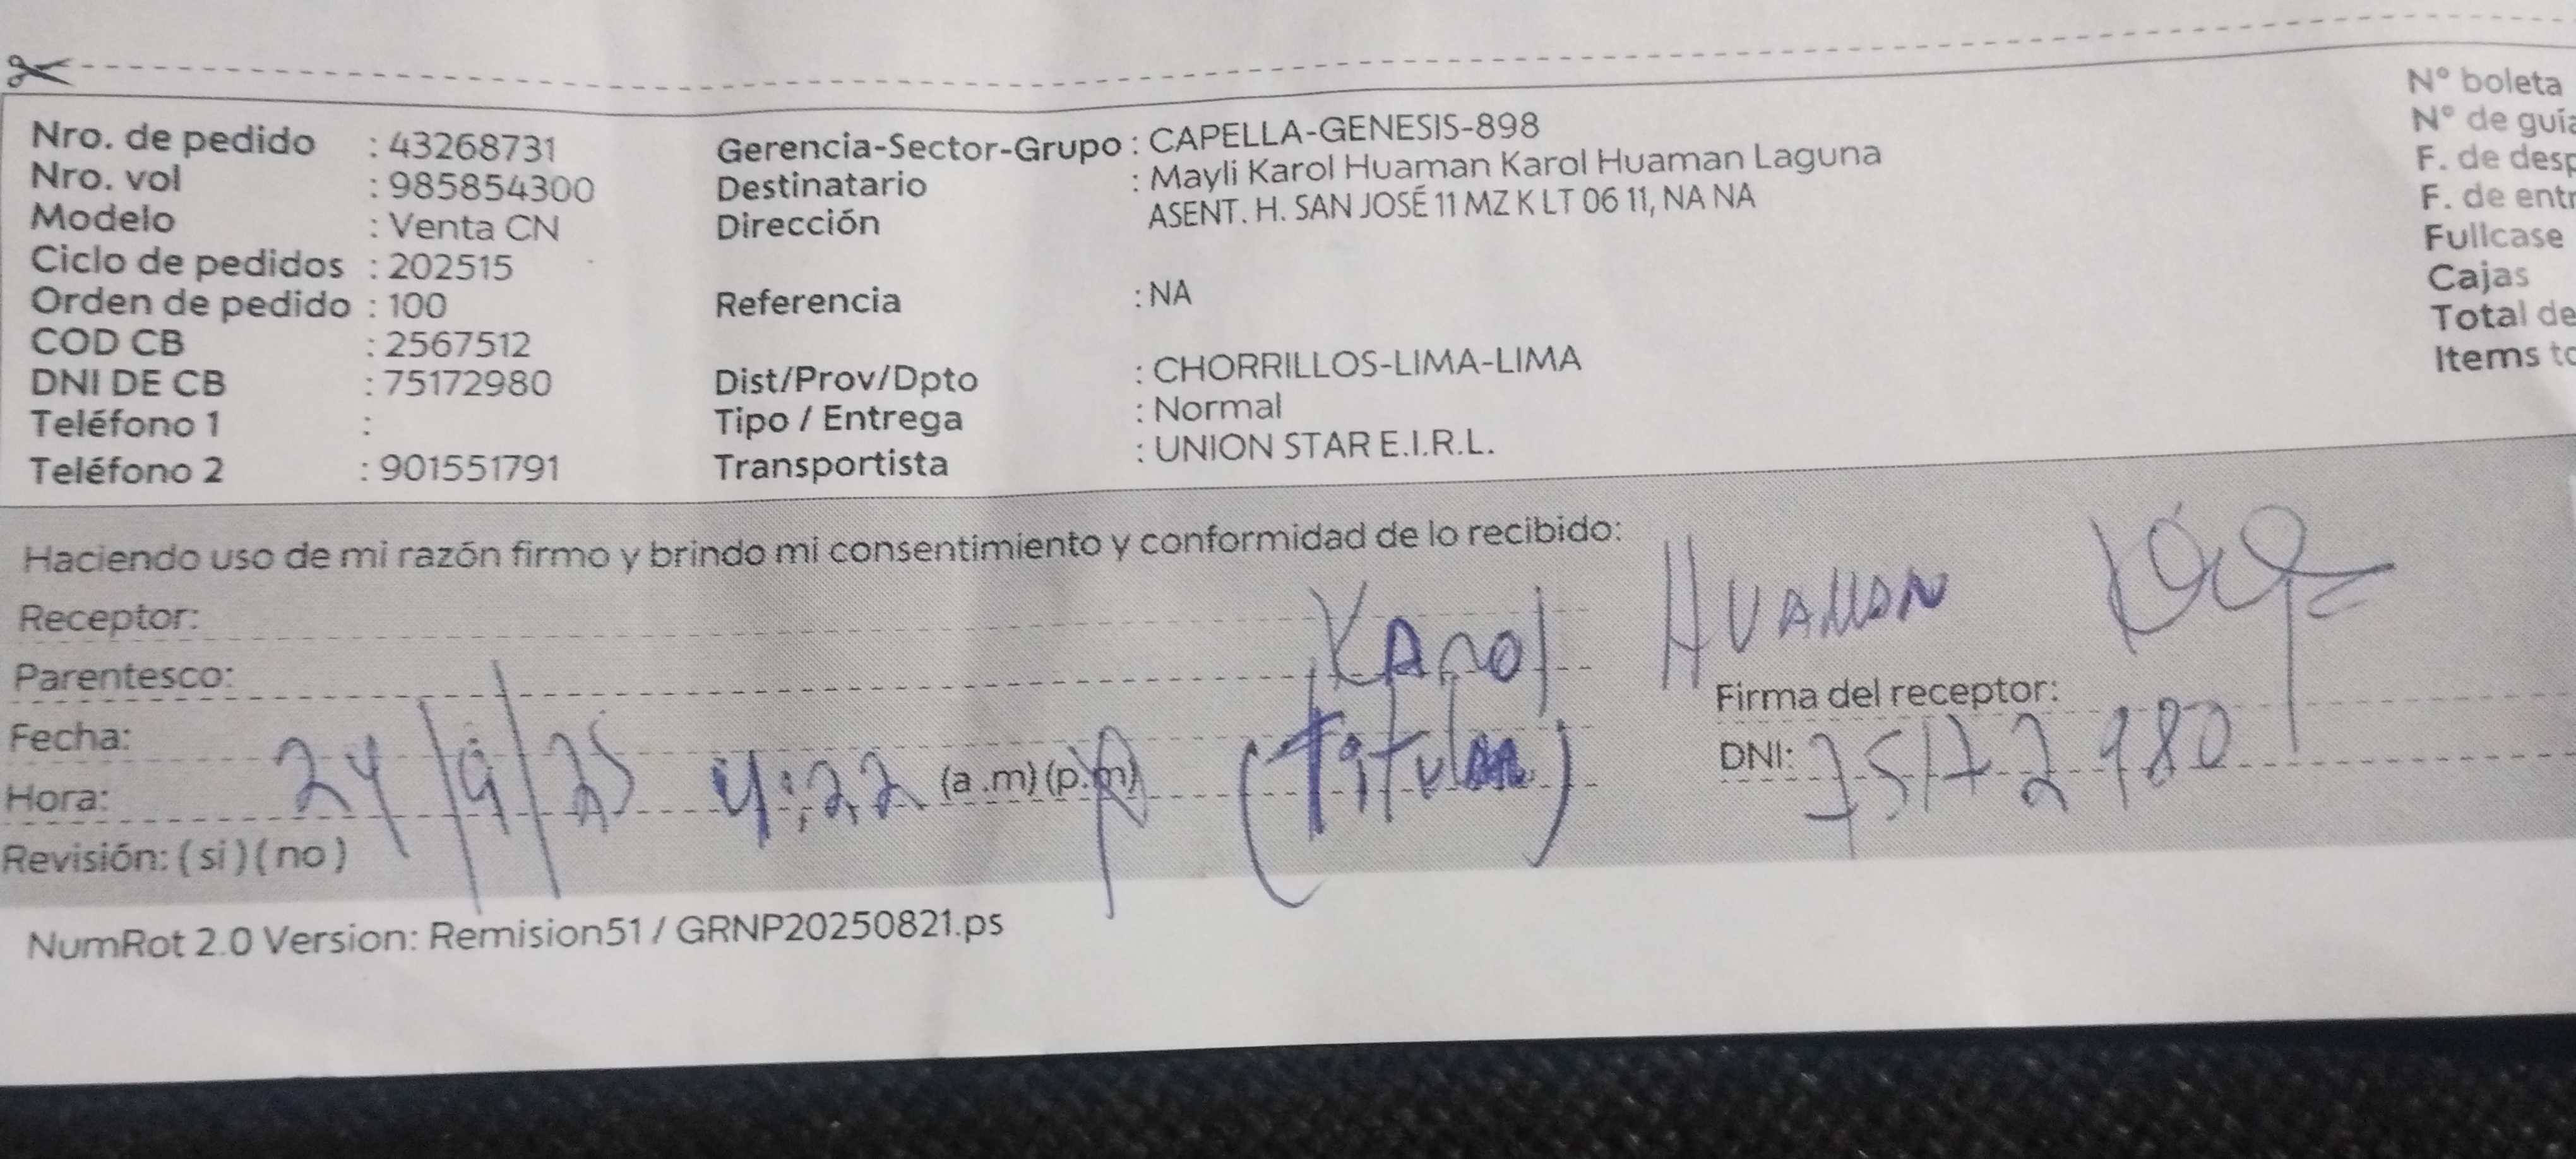 Nro. de pedido : 43268731
Nro. vol : 985854300
Modelo : Venta CN
Ciclo de pedidos : 202515
Orden de pedido : 100
COD CB : 2567512
DNI DE CB : 75172980
Teléfono 1 :
Teléfono 2 : 901551791
Gerencia-Sector-Grupo : CAPELLA-GENESIS-898
Destinatario : Mayli Karol Huaman Karol Huaman Laguna
Dirección ASENT. H. SAN JOSÉ 11 MZ K LT 06 11, NA NA
Referencia : NA
Dist/Prov/Dpto : CHORRILLOS-LIMA-LIMA
Tipo / Entrega : Normal
Transportista : UNION STAR E.I.R.L.
N° boleta
N° de guía
F. de desp
F. de entr
Fullcase
Cajas
Total de
Items to
Haciendo uso de mi razón firmo y brindo mi consentimiento y conformidad de lo recibido:
Receptor: Karol HUAMAN
Parentesco: (Titular)
Fecha: 24/9/25
Hora: 4:22 (a .m) (p.m)
Revisión: ( si ) ( no )
Firma del receptor:
DNI: 75172980
NumRot 2.0 Version: Remision51 / GRNP20250821.ps